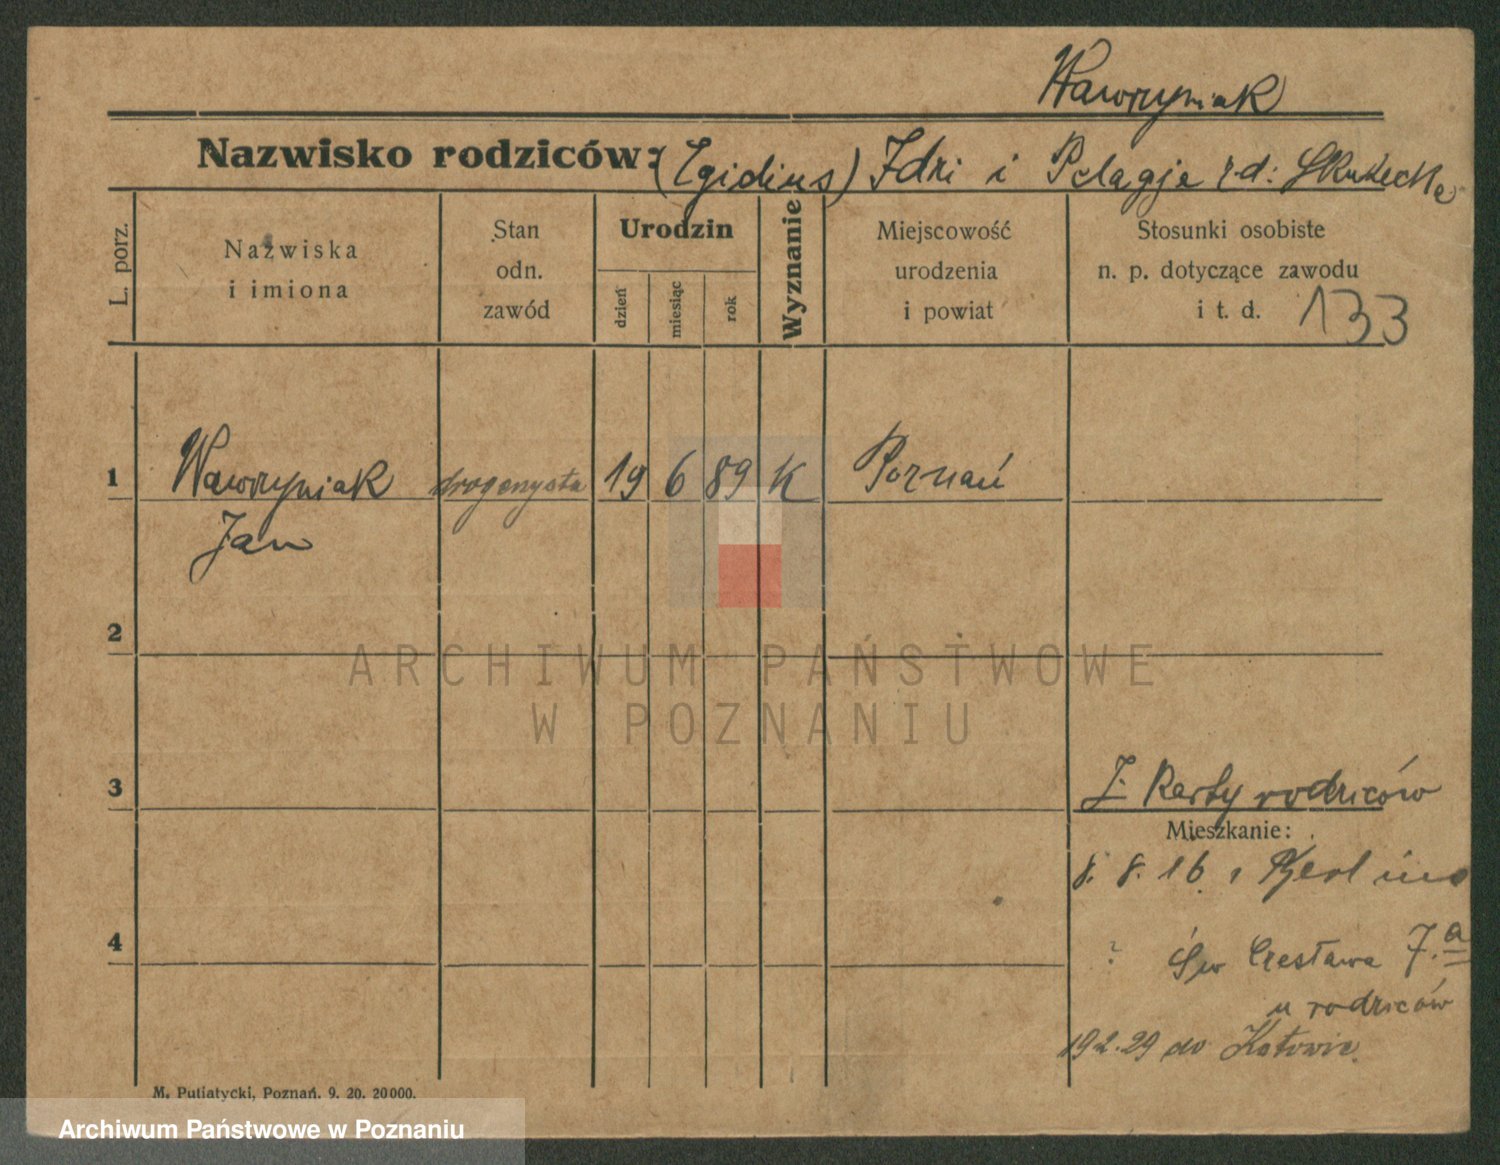 Wawrzyniak
Nazwisko rodziców: (Egidius) Idzi i Pelagje rd:
L. porz.
Nazwiska
i imiona
Stan
odn.
zawód
Urodzin
dzień
miesiąc
rok
Wyznanie
Miejscowość
urodzenia
i powiat
Stosunki osobiste
n. p. dotyczące zawodu
i t. d. 133
1 Wawrzyniak drogerzysta 19 6 89 K Poznań
Jan
2
ARCHIWUM PAŃSTWOWE
W POZNANIU
3
Z Karty rodziców
Mieszkanie:
8. 8. 16 z Berlina
4
? Św Czesława 7.a
u rodziców
19 2. 29 do Katowic
M. Putiatycki, Poznań. 9. 20. 20000.
Archiwum Państwowe w Poznaniu